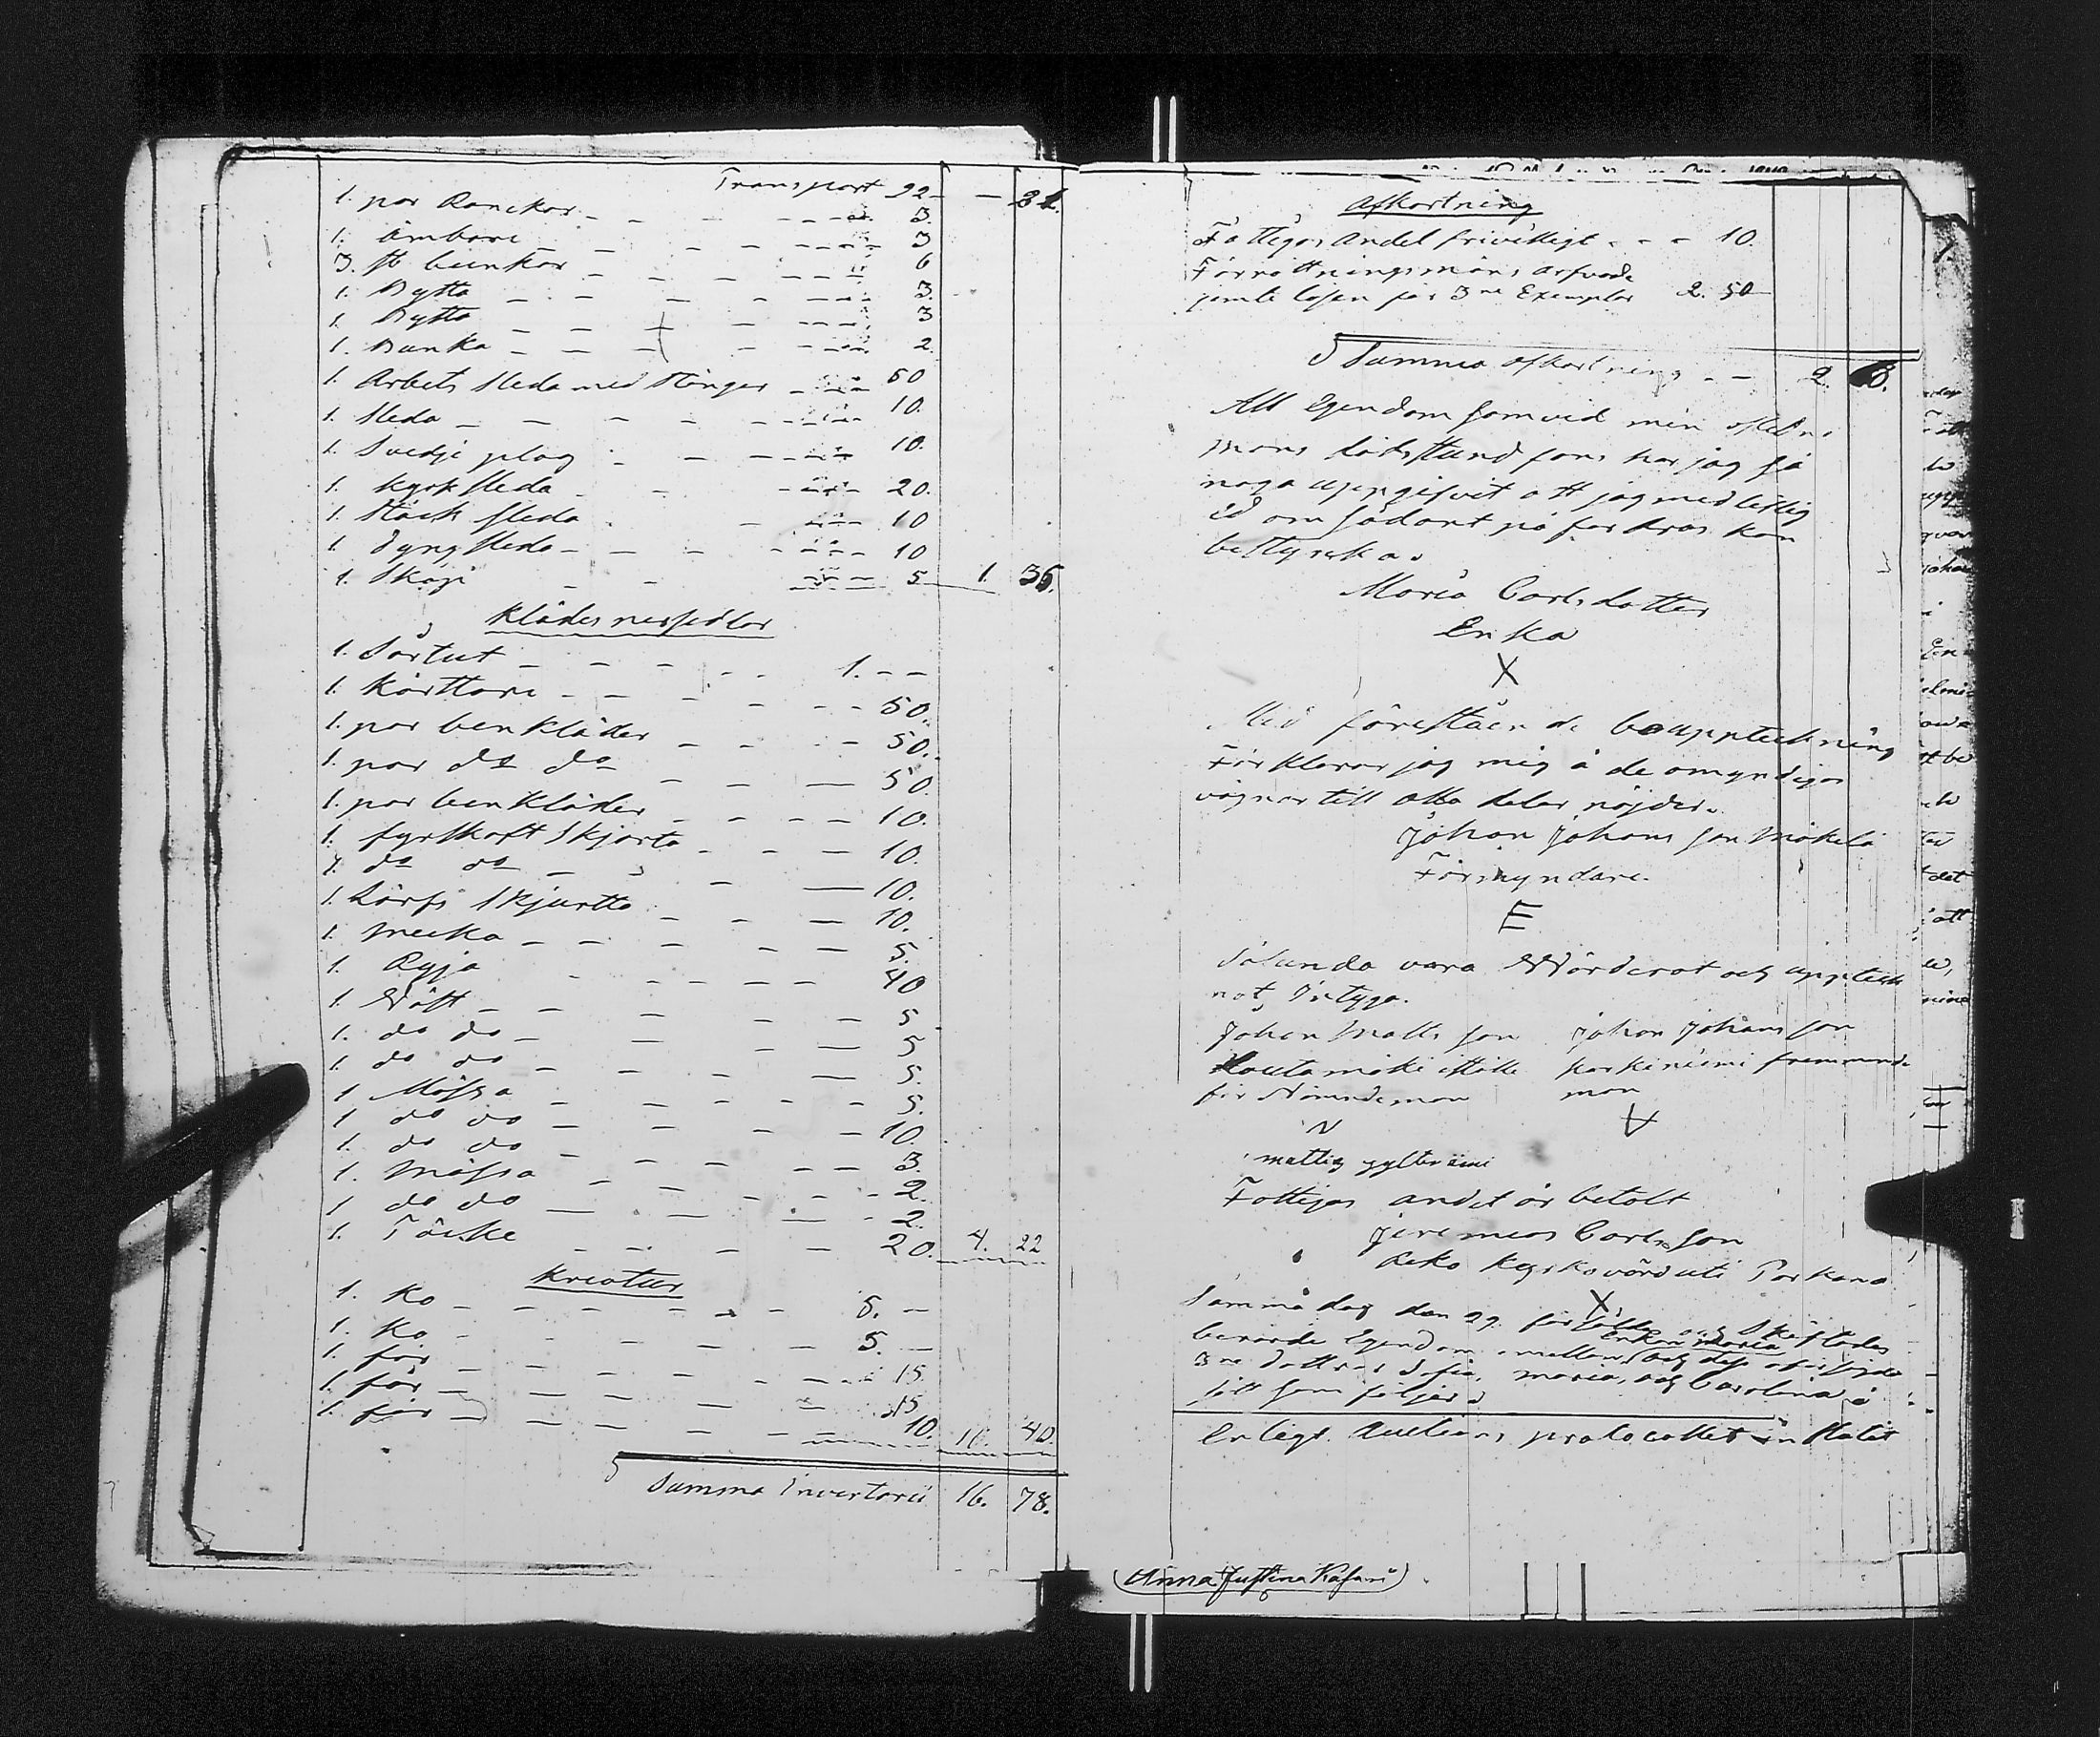 Transport 22 — 31.
1. par Ranckor 3.
1. Ämbare 3
3. st bunkor 6
1. Bytta 3.
1. Bytta 3
1. Bunka 2.
1. Arbets sleda med stänger 50
1. sleda 10.
1. Svedje plog 10.
1. kyrk sleda 20.
1. stäck sleda 10
1. dyng sleda 10
1. Skogi 5 1. 35.
Klädes persedlar
1. Sortut 1. --
1. Korttare 50.
1. par benkläder 50.
1. par do do 50.
1. par benkläder 10.
1. fyrskaft skjorta 10.
1. do do 10.
1. Lärfs skjortta 10.
1. Mecko 5.
1. Ryja 40
1. Väst 5
1. do do 5
1. do do 5.
1 Mössa 5.
1 do do 10.
1. do do 3.
1. Mössa 2.
1 do do 2.
1. Täcke 20. 4. 22
Kreatur
1. Ko 5. —
1. Ko 5. —
1. får 15.
1. får 15
1. får 10. 10. 40.
Summa Inventarii 16. 78.
Afkortning
Fattigas Andel frivilligt 10.
Förrättningsmäns arfvode
jemte lösen för 3ne Exemplar 2. 50
Summa afkortning 2.
All Egendom som vid min afledne
mans dödsstund fans har jag så
noga uppgifvit att jag med liflig
Ed om sådant på fordras kan
bestyrka.
Maria Carlsdotter
Enka
X
Med förestående bouppteckning
Förklarar jag mig å de omyndigas
vägnar till alla delar nöjder.
Johan Johansson Mäkelä
Förmyndare.
E
Sålunda vara Wärderat och uppteck
nat, Intyga.
Johan Mattsson Johan Johansson
Routamäki i ställe karkiniemi fremmande
för Nämndeman man
N V
mattig yylteniemi
Fattigas andel är betalt
Jeremias Carlsson
Reko kyrkovärd uti Parkano
X
Samma dag den 29. förföllo och Skiftades
berörde Egendom mellan Enkan Maria och des afvisjde
3ne dottrar Sofia, Maria, och Carolina å
sätt som följer
Enligt Auctions protocollet in stalit
(Anna Justina Kåfari)